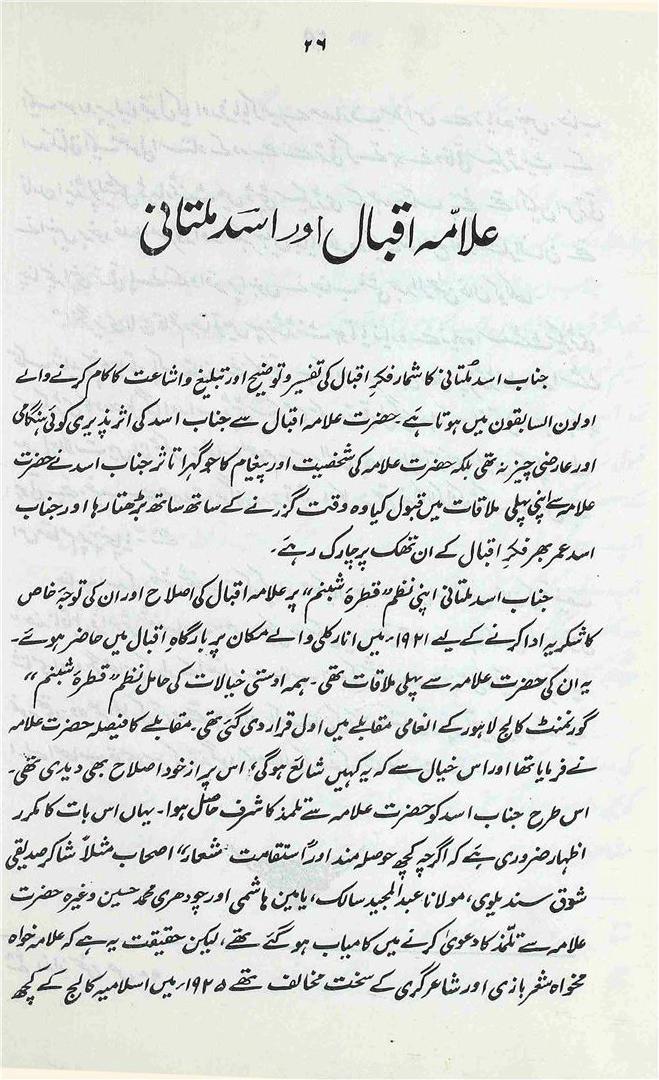 ۲۶
علامّہ اقبال اور اسَد ملتانی
جناب اسد ملتانی کا شمار فکرِ اقبال کی تفسیر و توضیح اور تبلیغ و اشاعت کا کام کرنے والے
اولون السابقون میں ہوتا ہے۔ حضرت علامہ اقبال سے جناب اسد کی اثر پذیری کوئی ہنگامی
اور عارضی چیز نہ تھی بلکہ حضرت علامہ کی شخصیت اور پیغام کا جو گہرا تاثر جناب اسد نے حضرت
علامہ سے اپنی پہلی ملاقات میں قبول کیا وہ وقت گزرنے کے ساتھ ساتھ بڑھتا رہا اور جناب
اسد عمر بھر فکرِ اقبال کے ان تھک پرچارک رہے۔
جناب اسد ملتانی اپنی نظم "قطرۂ شبنم" پر علامہ اقبال کی اصلاح اور ان کی توجہِ خاص
کا شکریہ ادا کرنے کے لیے ۱۹۲۱ء میں انارکلی والے مکان پر بارگاہ اقبال میں حاضر ہوئے۔
یہ ان کی حضرت علامہ سے پہلی ملاقات تھی۔ ہمہ اوستی خیالات کی حامل نظم "قطرۂ شبنم"
گورنمنٹ کالج لاہور کے انعامی مقابلے میں اول قرار دی گئی تھی۔ مقابلے کا فیصلہ حضرت علامہ
نے فرمایا تھا اور اس خیال سے کہ یہ کہیں شائع ہوگی؛ اس پر از خود اصلاح بھی دیدی تھی۔
اس طرح جناب اسد کو حضرت علامہ سے تلمذ کا شرف حاصل ہوا۔ یہاں اس بات کا مکرر
اظہار ضروری ہے کہ اگرچہ کچھ حوصلہ مند اور "استقامت شعار" اصحاب مثلاً شاکر صدیقی
شوق سندیلوی، مولانا عبدالمجید سالک، یامین ہاشمی اور چودھری محمد حسین وغیرہ حضرت
علامہ سے تلمّذ کا دعویٰ کرنے میں کامیاب ہو گئے تھے، لیکن حقیقت یہ ہے کہ علامہ خواہ
مخواہ شعر بازی اور شاعر گری کے سخت مخالف تھے ۱۹۲۵ء میں اسلامیہ کالج کے کچھ